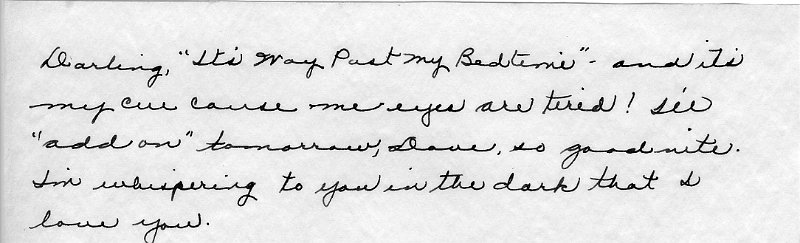 Darling, "It's Way Past My Bedtime" - and it's
my cue cause me eyes are tired! I'll
"add on" tomorrow, Dave, so good nite.
I'm whispering to you in the dark that I
love you.